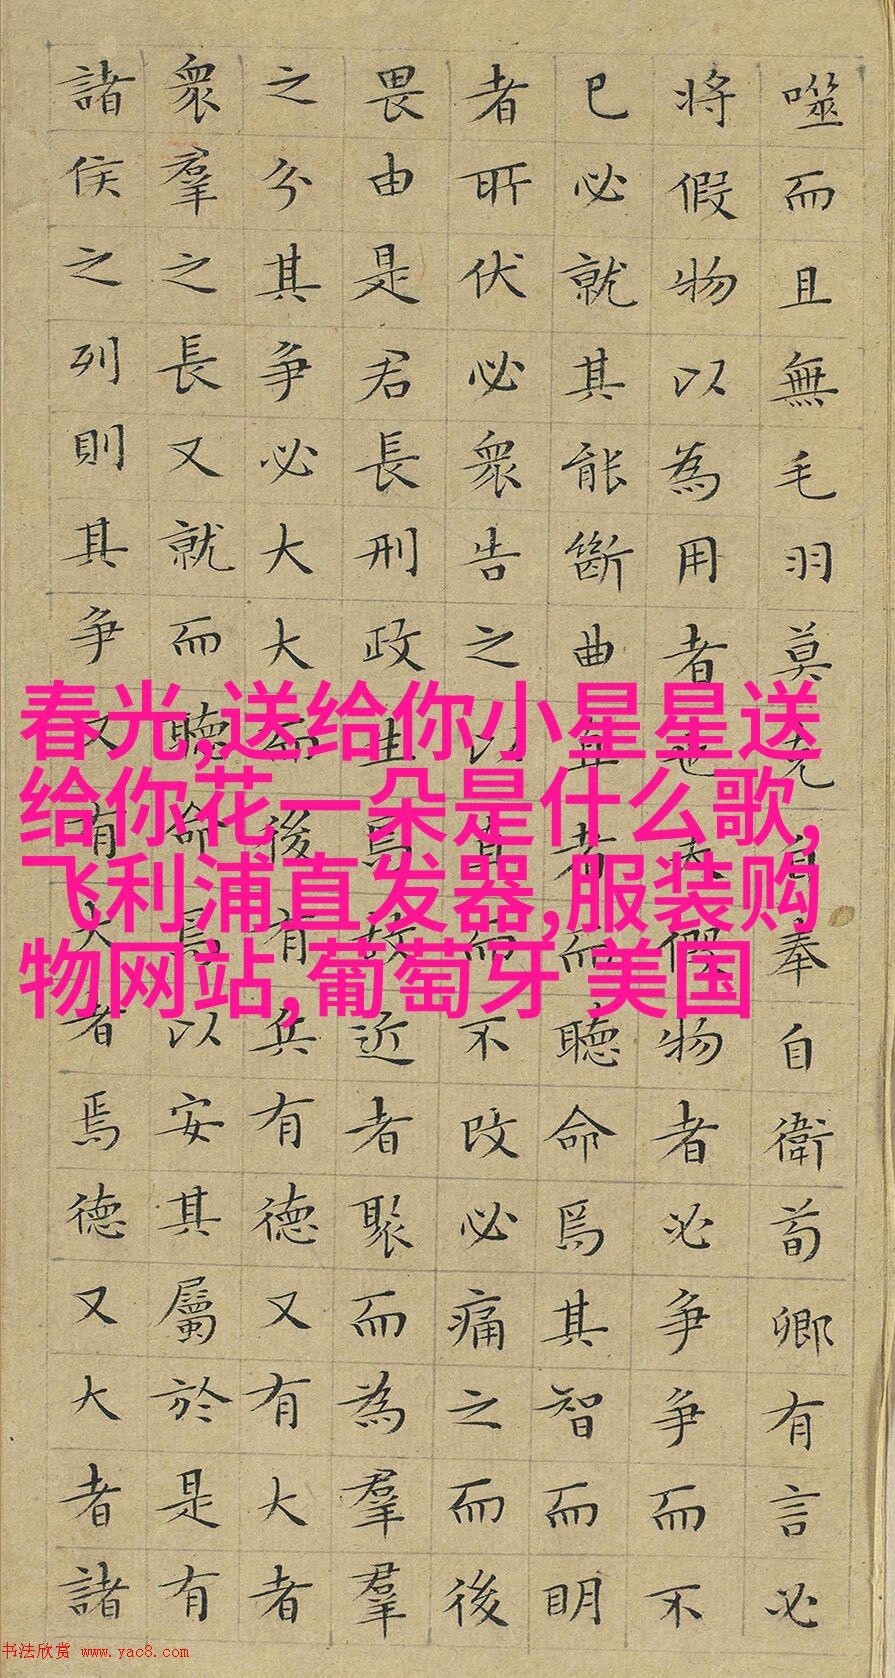 噬而且無毛羽莫克自奉自衛荀卿有言必
將假物以為用者也夫假物者必爭爭而不
已必就其能斷曲直者而聽命焉其智而明
者所伏必衆告之以直而不改必痛之而後
畏由是君長刑政生焉故近者聚而為羣羣
之分其爭必大大而後有兵有德又有大者
衆羣之長又就而聽命焉以安其屬於是有
諸侯之列則其爭又有大者焉德又大者諸
春光,送给你小星星送
给你花一朵是什么歌,
飞利浦直发器,服装购
物网站,葡萄牙 美国
书法欣赏 www.yac8.com